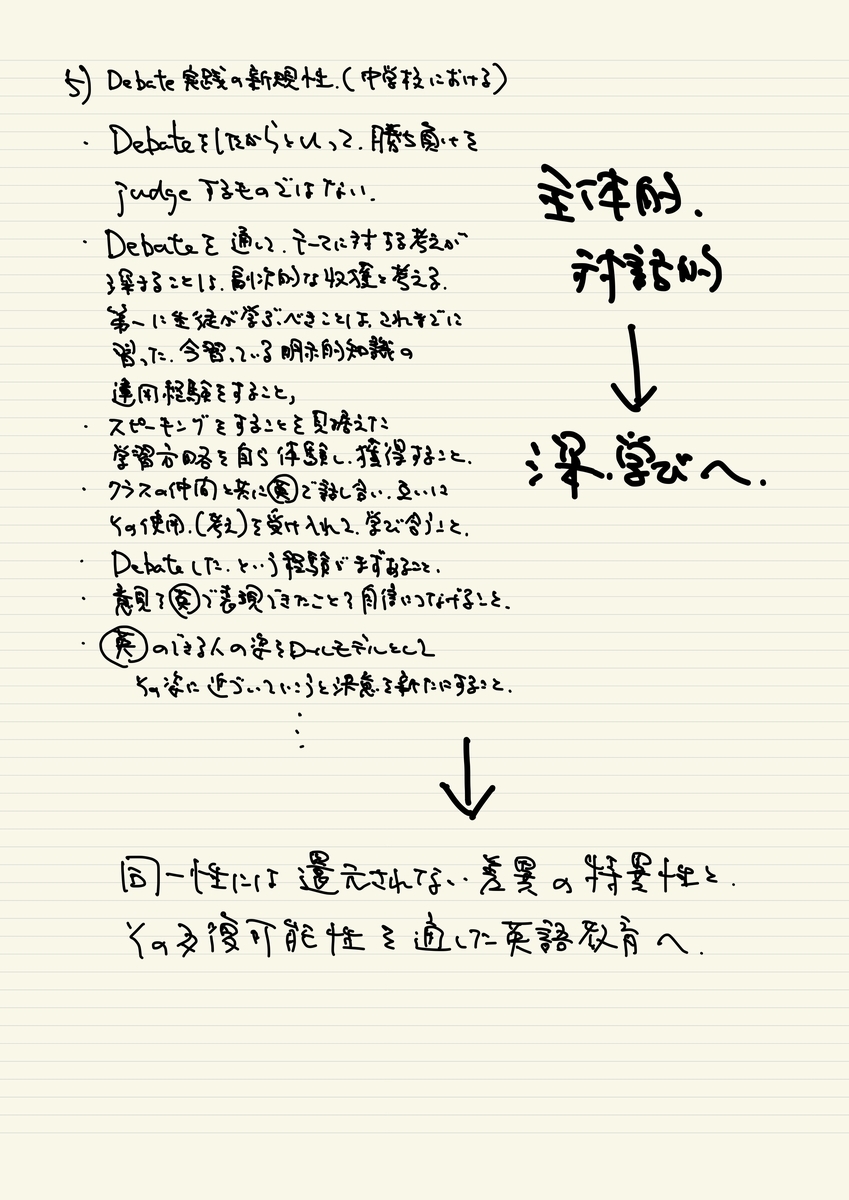 5) Debate 実践の新規性.(中学校における)
・ Debateをしたからといって、勝ち負けを
judge するものではない.
・ Debateを 通して、テーマに対する考えが
深まることは、副次的な収穫と考える.
第一に生徒が学ぶべきことは、これまでに
習った、今習っている明示的知識の
運用経験をすること,
・ スピーキングをすることを見据えた
学習方略を自ら体験し、獲得すること.
・ クラスの仲間と共に英で話し合い、互いに
その使用.(考え)を受け入れて、学び合うこと.
・ Debateした、という経験がまずあること.
・ 意見を英で表現できたことを自信につなげること.
・ 英のできる人の姿をロールモデルとして
その姿に近づいていこうと決意を新たにすること.
主体的.
対話的
↓
深い学びへ.
↓
同一性には還元されてない差異の特異性と.
その可能性を通した英語教育へ.